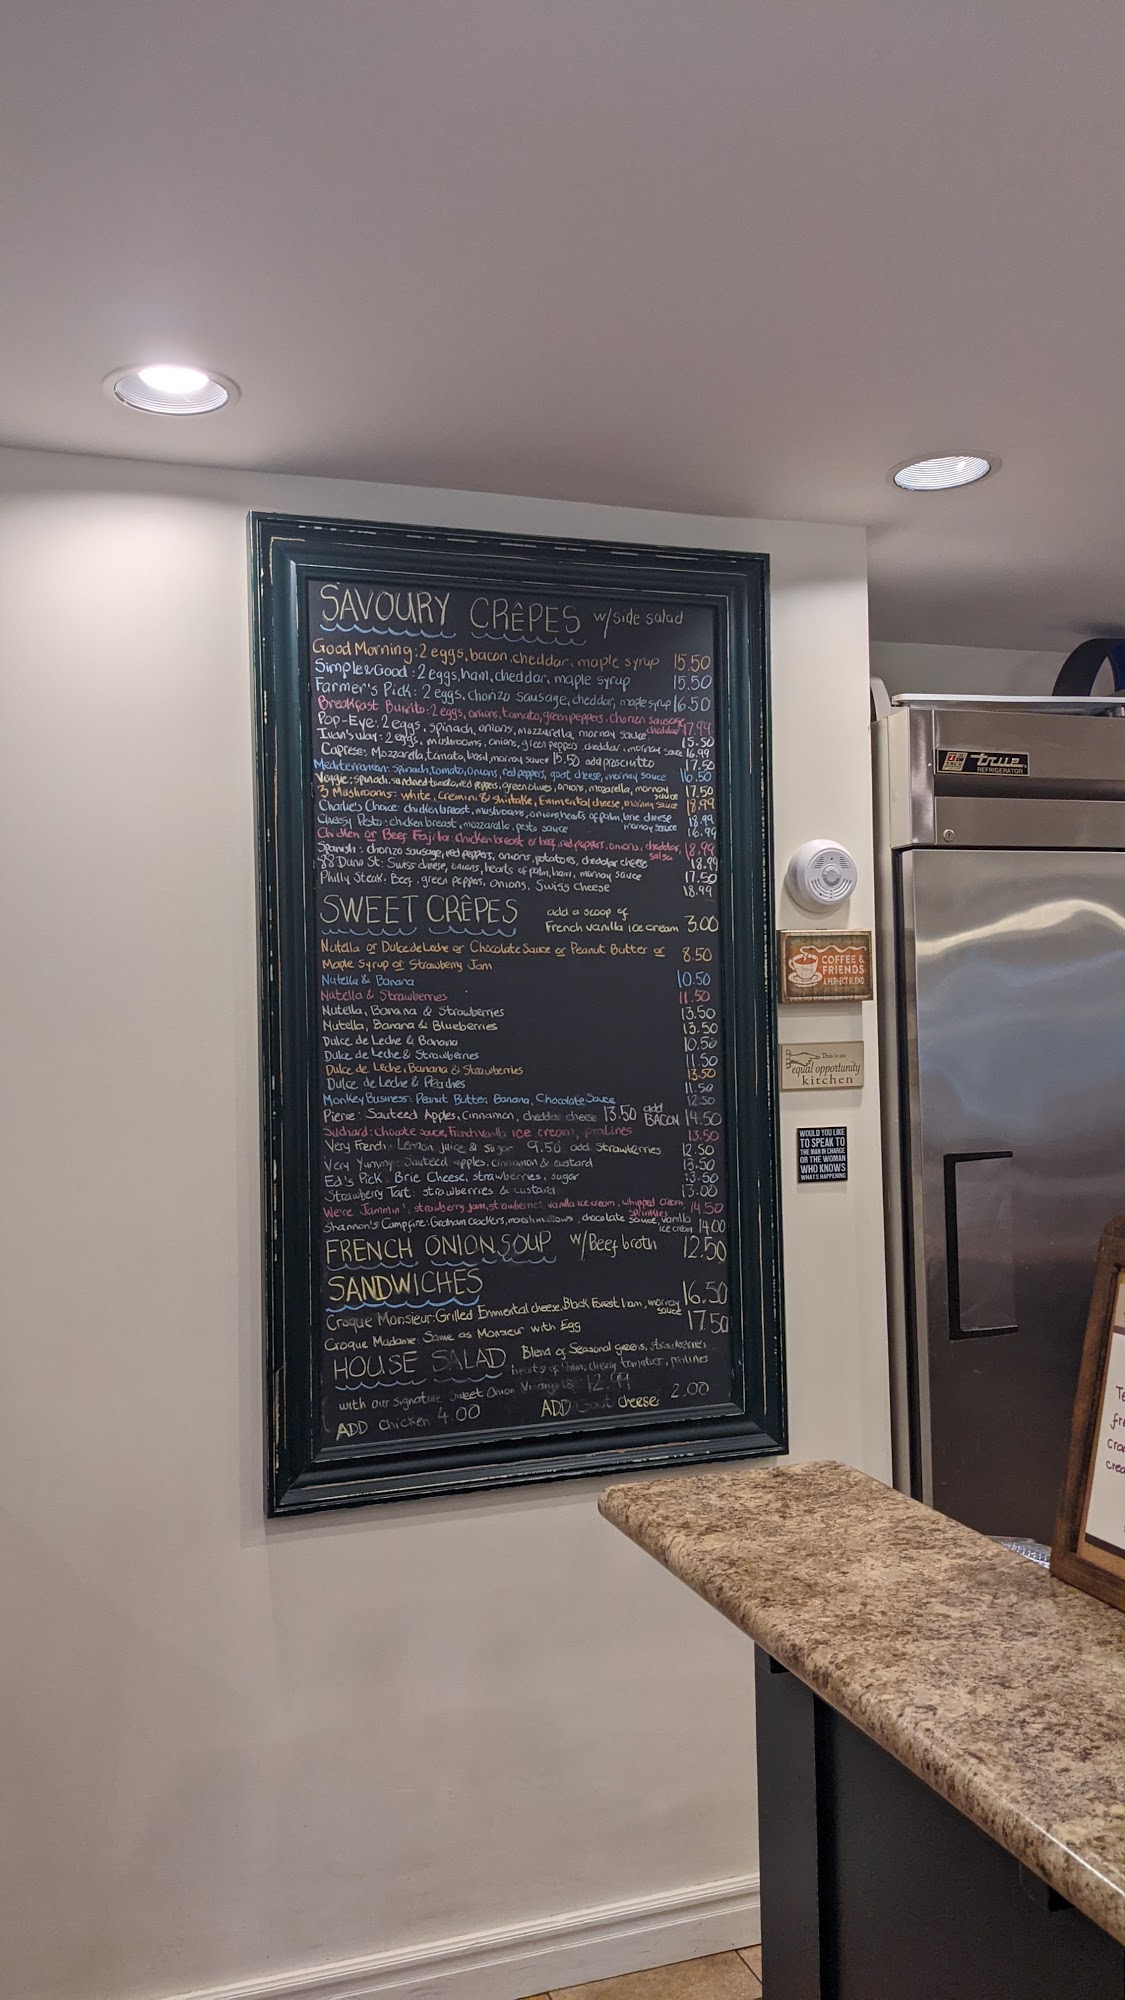 SAVOURY CRÊPES w/side salad
Good Morning: 2 eggs, bacon, cheddar, maple syrup 15.50
Simple & Good: 2 eggs, ham, cheddar, maple syrup 15.50
Farmer's Pick: 2 eggs, Chorizo sausage, cheddar, maple syrup 16.50
Breakfast Burrito: 2 eggs, onions, tomato, green peppers, sausage cheddar 17.99
Pop-Eye: 2 eggs, spinach, onions, mozzarella, mornay sauce 15.50
2 eggs, mushrooms, onions, green peppers, cheddar, mornay sauce 16.99
Caprese: Mozzarella, tomato, basil, mornay sauce 15.50 add prosciutto 17.50
Mediterranean: spinach, tomato, onions, red peppers, goat cheese, mornay sauce 16.50
Veggie: spinach, sundried tomato, red peppers, green olives, onions, mozarella, mornay sauce 17.50
3 Mushrooms: white, cremini & shiitake, Emmental cheese, mornay sauce 18.99
Charlie's Choice: chicken breast, mushrooms, onions, hearts of palm, brie cheese mornay sauce 18.99
Cheesy Pesto: chicken breast, mozzarella, pesto sauce 16.99
Chicken or Beef Fajita: Chicken breast or beef, red peppers, onions, cheddar, salsa 18.99
Spanish: chorizo sausage, red peppers, onions, potatoes, cheddar cheese 18.99
88 Dunn St: Swiss cheese, onions, hearts of palm, ham, mornay sauce 17.50
Philly Steak: Beef, green peppers, onions, Swiss cheese 18.99
SWEET CRÊPES add a scoop of
French vanilla ice cream 3.00
Nutella or Dulce de Leche or Chocolate Sauce or Peanut Butter or 8.50
Maple Syrup or Strawberry Jam
Nutella & Banana 10.50
Nutella & Strawberries 11.50
Nutella, Banana & Strawberries 13.50
Nutella, Banana & Blueberries 13.50
Dulce de Leche & Banana 10.50
Dulce de Leche & Strawberries 11.50
Dulce de Leche, Banana & Strawberries 13.50
Dulce de Leche & Peaches 11.50
Monkey Business: Peanut Butter, Banana, Chocolate Sauce 12.50
Pierre: Sauteed Apples, Cinnamon, cheddar cheese 13.50 add BACON 14.50
Suchard: Chocolate sauce, French vanilla ice cream, pralines 13.50
Very French: Lemon juice & sugar 9.50 add Strawberries 12.50
Very Yummy: Sauteed apples, cinnamon & custard 13.50
Ed's Pick: Brie Cheese, strawberries, sugar 13.50
Strawberry Tart: strawberries & custard 13.00
We're Jammin': strawberry jam, strawberries, vanilla ice cream, whipped cream sprinkles 14.50
Shannon's Campfire: Graham Crackers, marshmallows, chocolate sauce, vanilla ice cream 14.00
FRENCH ONION SOUP w/Beef broth 12.50
SANDWICHES
Croque Monsieur: Grilled Emmental cheese, Black Forest Ham, mornay sauce 16.50
Croque Madame: Same as Monsieur with Egg 17.50
HOUSE SALAD Blend of Seasonal greens, strawberries
hearts of palm, cherry tomatoes, pralines
with our signature Sweet Onion 12.99
ADD Chicken 4.00 ADD Goat cheese 2.00
true
REFRIGERATOR
COFFEE &
FRIENDS
A PERFECT BLEND
This is an
equal opportunity
kitchen
WOULD YOU LIKE
TO SPEAK TO
THE MAN IN CHARGE
OR THE WOMAN
WHO KNOWS
WHAT'S HAPPENING